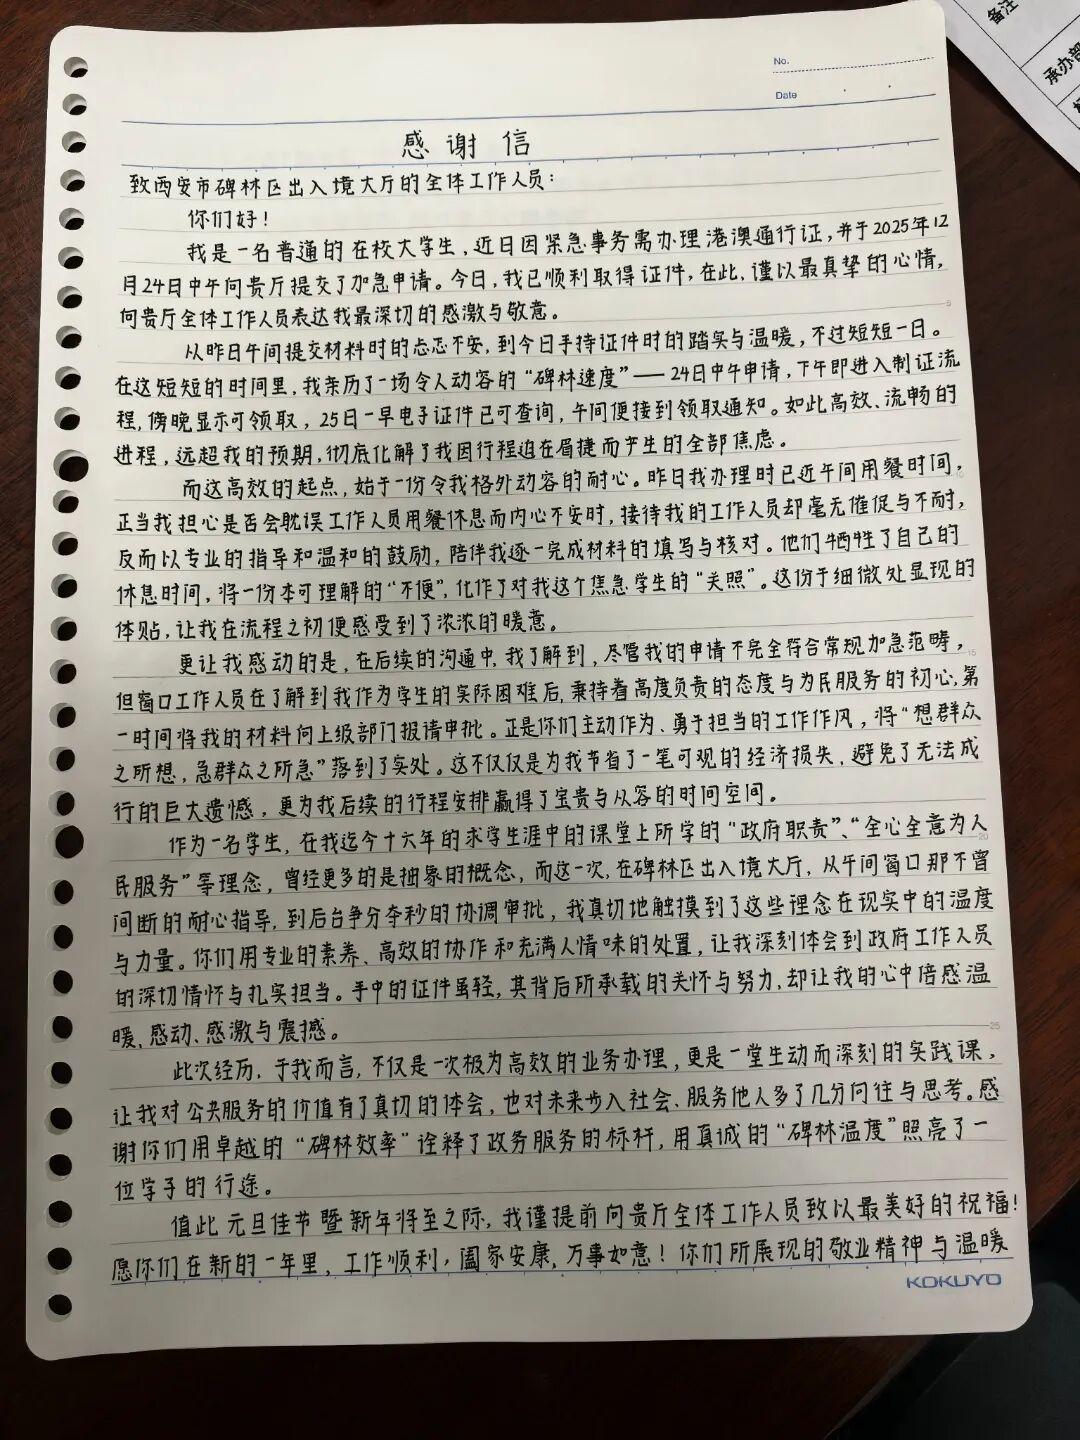 No.
Date
备注
承办部
感谢信
致西安市碑林区出入境大厅的全体工作人员：
你们好！
我是一名普通的在校大学生，近日因紧急事务需办理港澳通行证，并于2025年12
月24日中午向贵厅提交了加急申请。今日，我已顺利取得证件，在此，谨以最真挚的心情，
向贵厅全体工作人员表达我最深切的感激与敬意。
从昨日午间提交材料时的忐忑不安，到今日手持证件时的踏实与温暖，不过短短一日。
在这短短的时间里，我亲历了一场令人动容的“碑林速度”——24日中午申请，下午即进入制证流
程，傍晚显示可领取，25日一早电子证件已可查询，午间便接到领取通知。如此高效、流畅的
进程，远超我的预期，彻底化解了我因行程迫在眉捷而产生的全部焦虑。
而这高效的起点，始于一份令我格外动容的耐心。昨日我办理时已近午间用餐时间，
正当我担心是否会耽误工作人员用餐休息而内心不安时，接待我的工作人员却毫无催促与不耐，
反而以专业的指导和温和的鼓励，陪伴我逐一完成材料的填写与核对。他们牺牲了自己的
休息时间，将一份本可理解的“不便”，化作了对我这个焦急学生的“关照”。这份于细微处显现的
体贴，让我在流程之初便感受到了浓浓的暖意。
更让我感动的是，在后续的沟通中，我了解到，尽管我的申请不完全符合常规加急范畴，
但窗口工作人员在了解到我作为学生的实际困难后，秉持着高度负责的态度与为民服务的初心，第
一时间将我的材料向上级部门报请审批。正是你们主动作为、勇于担当的工作作风，将“想群众
之所想，急群众之所急”落到了实处。这不仅仅是为我节省了一笔可观的经济损失，避免了无法成
行的巨大遗憾，更为我后续的行程安排赢得了宝贵与从容的时间空间。
作为一名学生，在我迄今十六年的求学生涯中的课堂上所学的“政府职责”、“全心全意为人
民服务”等理念，曾经更多的是抽象的概念，而这一次，在碑林区出入境大厅，从午间窗口那不曾
间断的耐心指导，到后台争分夺秒的协调审批，我真切地触摸到了这些理念在现实中的温度
与力量。你们用专业的素养、高效的协作和充满人情味的处置，让我深刻体会到政府工作人员
的深切情怀与扎实担当。手中的证件虽轻，其背后所承载的关怀与努力，却让我的心中倍感温
暖、感动、感激与震撼。
此次经历，于我而言，不仅是一次极为高效的业务办理，更是一堂生动而深刻的实践课，
让我对公共服务的价值有了真切的体会，也对未来步入社会、服务他人多了几分向往与思考。感
谢你们用卓越的“碑林效率”诠释了政务服务的标杆，用真诚的“碑林温度”照亮了一
位学子的行途。
值此元旦佳节暨新年将至之际，我谨提前向贵厅全体工作人员致以最美好的祝福！
愿你们在新的一年里，工作顺利，阖家安康，万事如意！你们所展现的敬业精神与温暖
KOKUYO